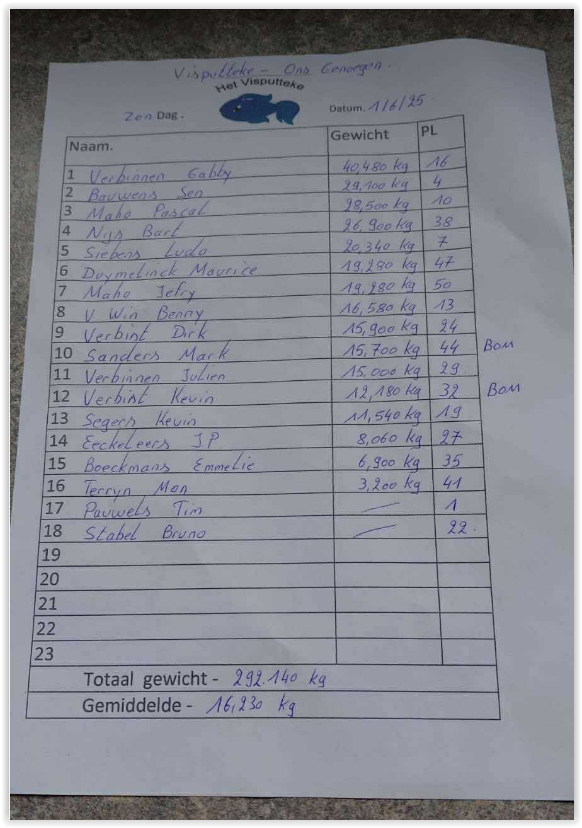 Visputteke - Ons Genoegen.
Het Visputteke
Zon Dag. Datum. 1/6/25.
Naam. Gewicht PL
1 Verbinnen Gabby 40,480 kg 16
2 Bauwens Sen 29,100 kg 4
3 Maho Pascal 28,500 kg 10
4 Nijs Bart 26,900 kg 38
5 Siebens Ludo 20,340 kg 7
6 Duymelinck Maurice 19,280 kg 47
7 Maho Jefry 19,280 kg 50
8 V Win Benny 16,580 kg 13
9 Verbist Dirk 15,900 kg 24
10 Sanders Mark 15,700 kg 44 Bom
11 Verbinnen Julien 15.000 kg 29
12 Verbist Kevin 12,180 kg 32 Bom
13 Segers Kevin 11,540 kg 19
14 Eeckeleers JP 8,060 kg 27
15 Boeckmans Emmelie 6,900 kg 35
16 Terryn Mon 3,200 kg 41
17 Pauwels Tim — 1
18 Stabel Bruno — 22.
19
20
21
22
23
Totaal gewicht - 292.140 kg
Gemiddelde - 16,230 kg